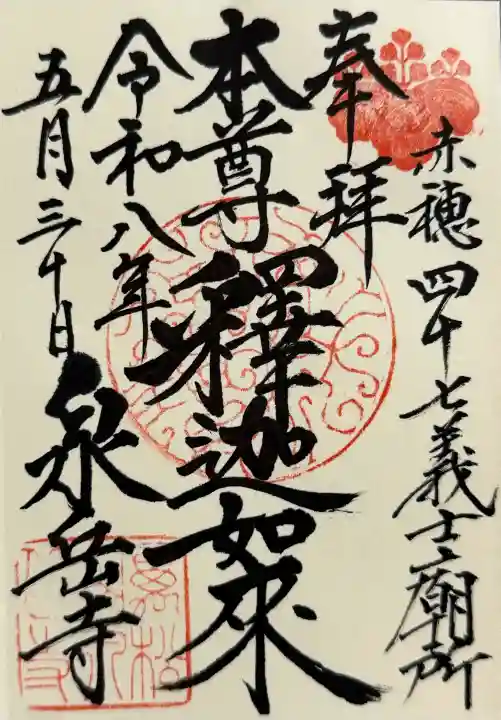 赤穂四十七義士廟所
奉拝
本尊釋迦如来
令和八年
五月三十日
泉岳寺